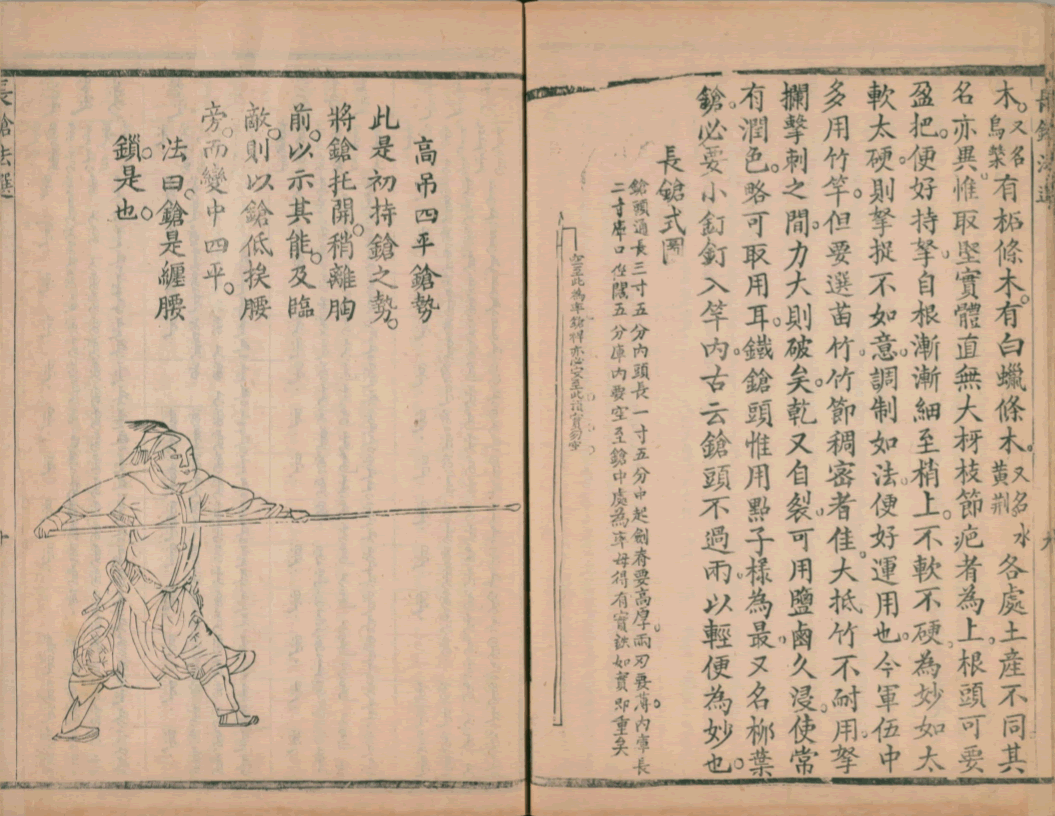 長鎗法選
九
木。又名烏槳有柘條木。有白蠟條木。又名水黃荆。各處土産不同其
名亦異。惟取堅實體直無大枒枝節疤者為上。根頭可要
盈把。便好持拏。自根漸漸細至梢上。不軟不硬為妙。如太
軟太硬則拏捉不如意。調制如法便好運用也。今軍伍中
多用竹竿。但要選苗竹竹節稠密者佳。大抵竹不耐用。拏
攔擊刺之間。力大則破矣。乾又自裂。可用鹽鹵久浸。使常
有潤色。略可取用耳。鐵鎗頭惟用點子樣為最。又名柳葉
鎗。必要小釘釘入竿內。古云鎗頭不過兩。以輕便為妙也。
長鎗式圖
鎗頭通長三寸五分內頭長一寸五分中起劍脊要高厚兩刃要薄內庫長
二寸庫口徑闊五分庫內要空至鎗中處為率毋得有實鉄如實即重矣
高吊四平鎗勢
此是初持鎗之勢。
將鎗托開。稍離胸
前。以示其能。及臨
敵。則以鎗低挨腰
旁。而變中四平。
法曰。鎗是纏腰
鎖。是也。
長鎗法選
十